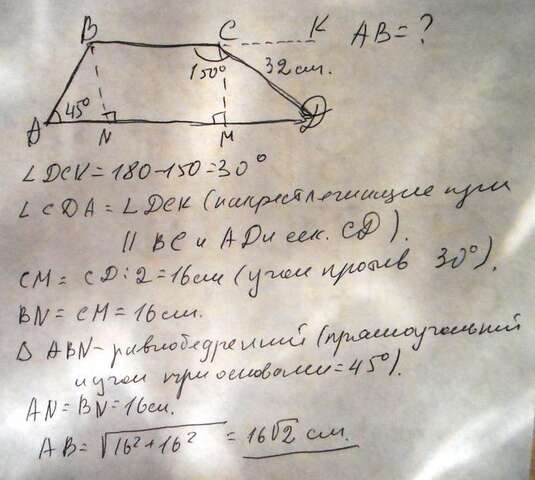 B C K AB = ?
150° 32 см.
A 45° N M D
∠DCK = 180-150 = 30°
∠CDA = ∠DCK (накрестлежащие при
|| BC и AD и сек. CD).
CM = CD : 2 = 16 см (угол против 30°).
BN = CM = 16 см.
Δ ABN - равнобедренный (прямоугольный
и угол при основании = 45°).
AN = BN = 16 см.
AB = √16² + 16² = 16√2 см.